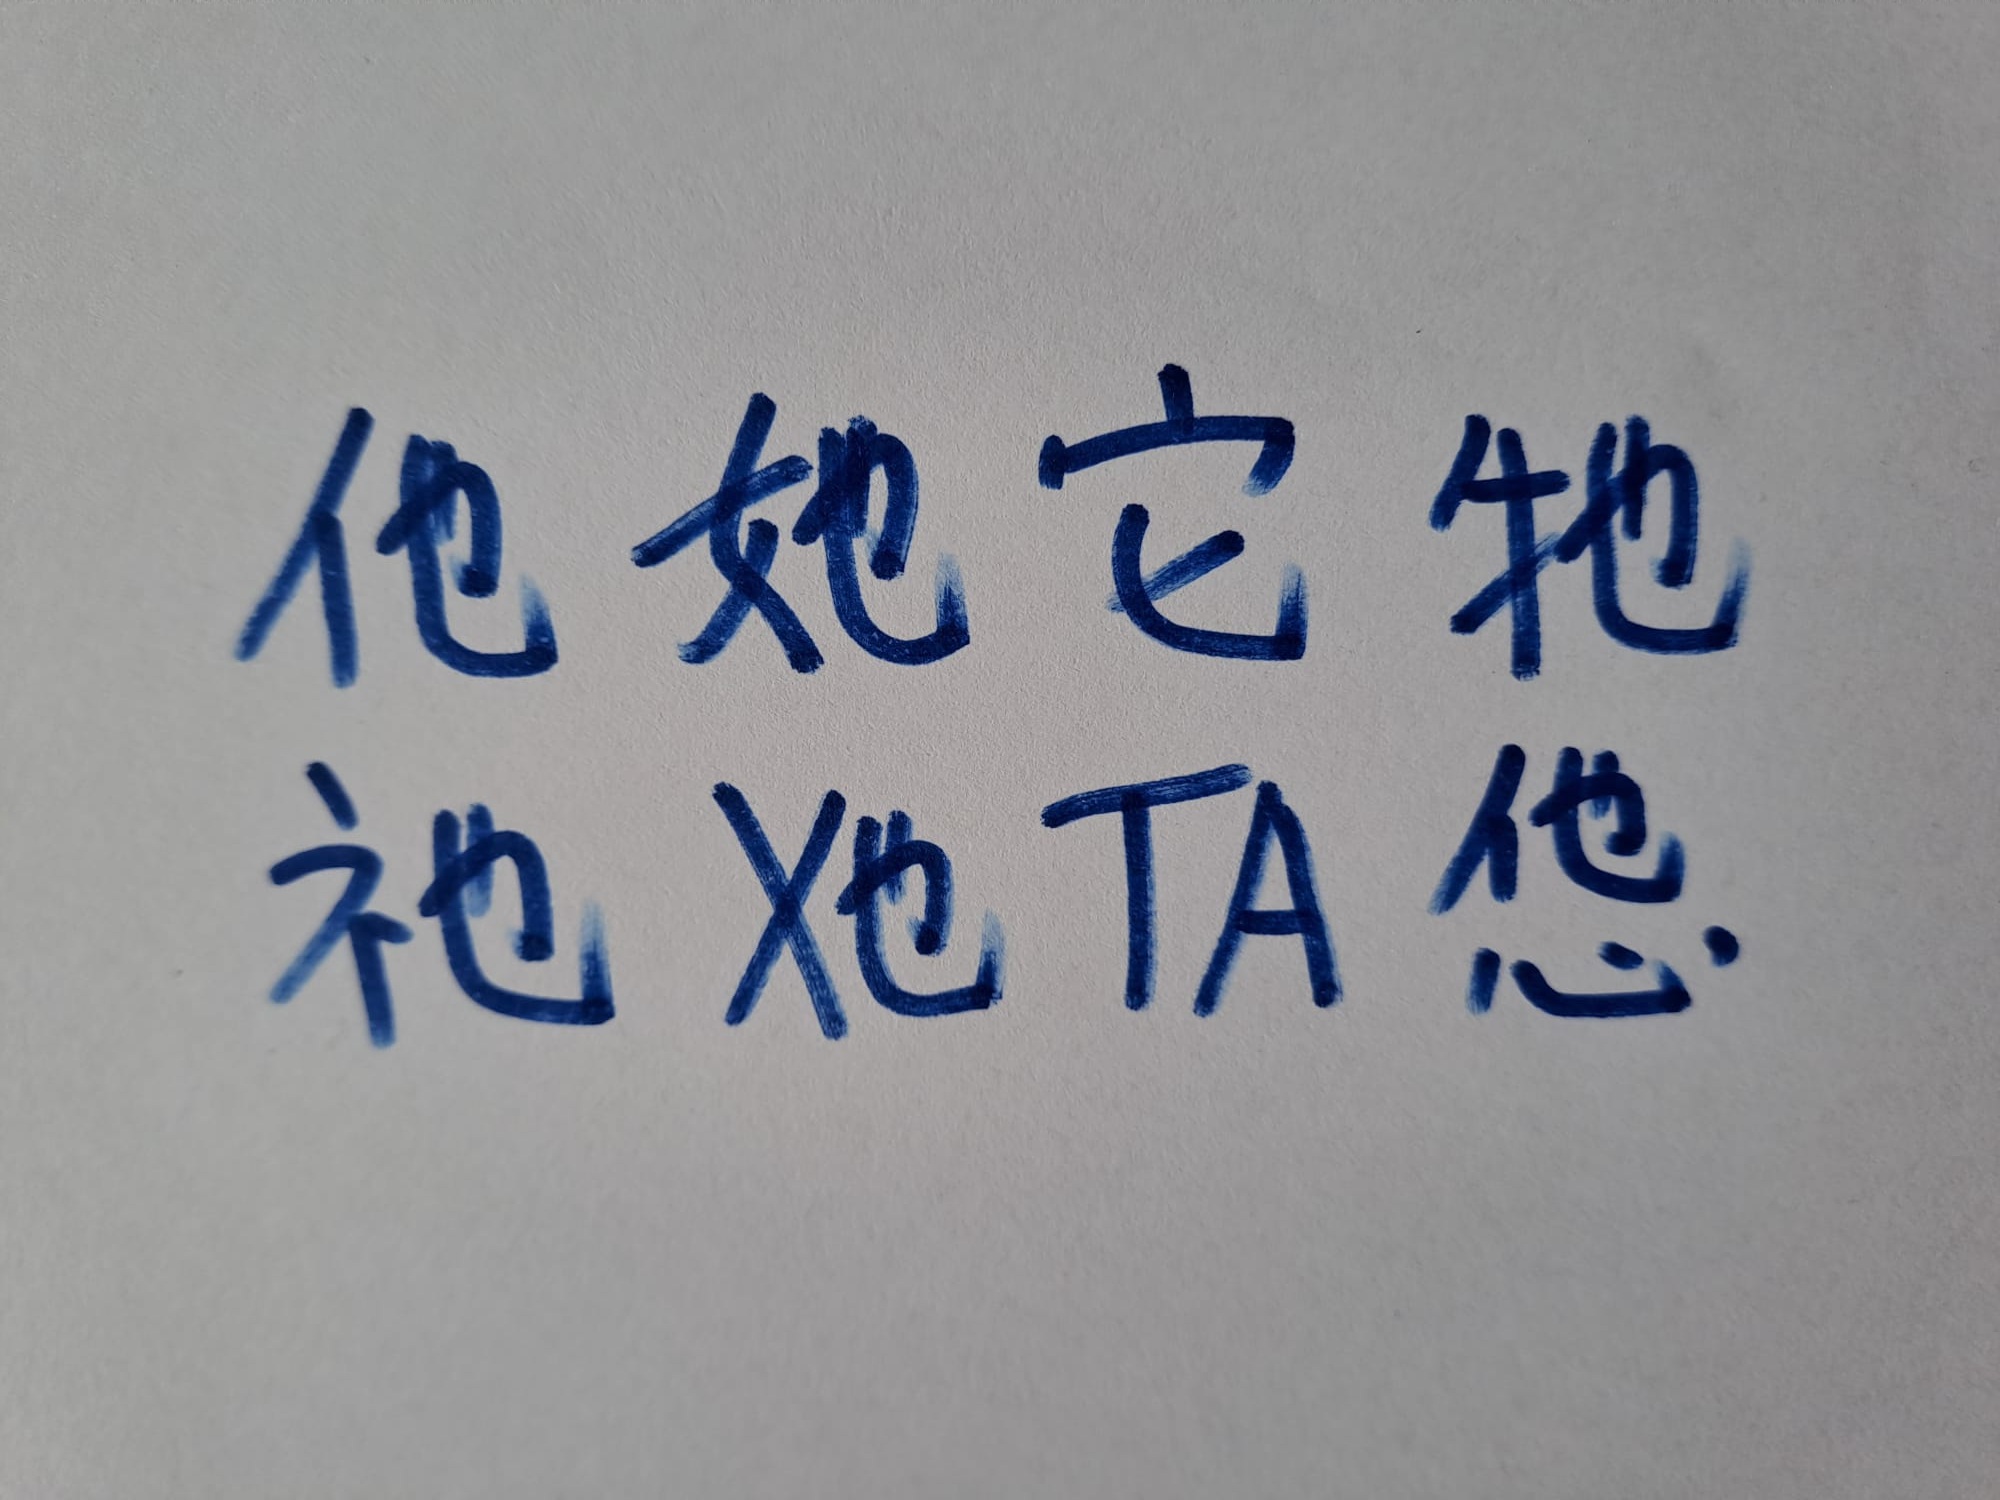 他 她 它 牠
祂 X也 TA 怹